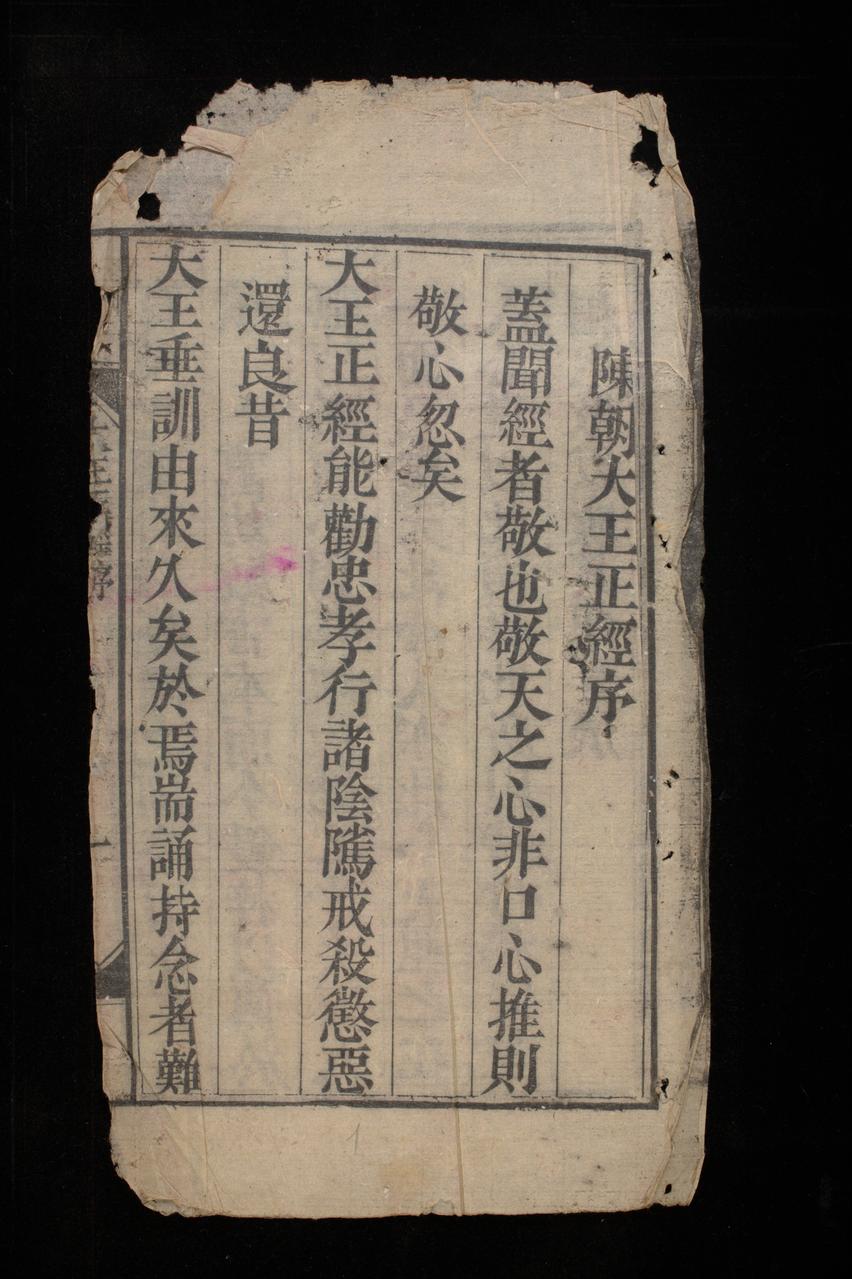 陳朝大王正經序
蓋聞經者敬也敬天之心非口心推則
敬心忽矣
大王正經能勸忠孝行諸陰隲戒殺懲惡
還良昔
大王垂訓由來久矣於焉耑誦持念者難
序